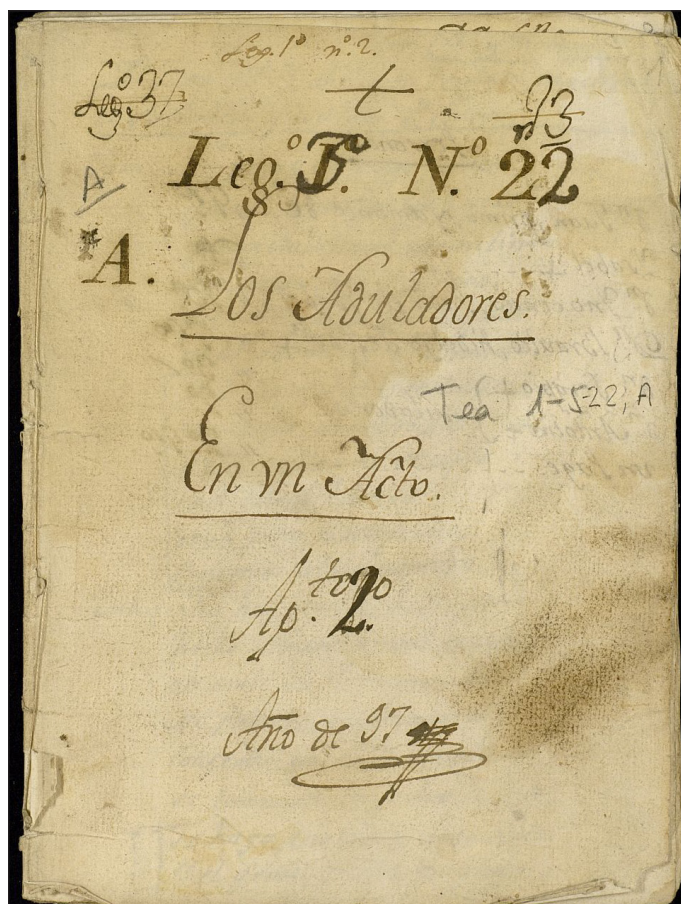 Leg. 1º nº. 2.
Legº 37
23
Leg.º 3º N.º 22
A
A.
Los Aduladores.
Tea 1-5-22, A
En vn Acto.
Ap.to 2
Año de 97